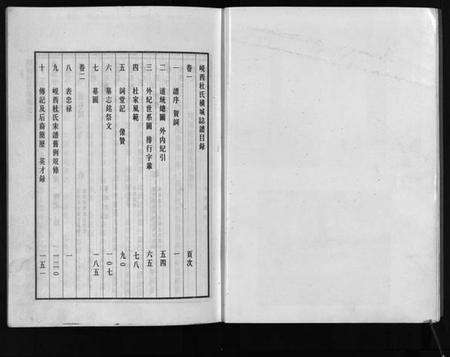 峴西杜氏橫城誌譜目錄
卷一 頁次
一 譜序 賀詞 一
二 道統總圖 外內紀引 五四
三 外紀世系圖 排行字彙 六五
四 杜家風範 七八
五 詞堂記 像贊 九〇
六 墓志銘祭文 一〇七
七 墓圖 一八五
卷二
八 表忠祿 一
九 峴西杜氏宗譜舊例規條 一二〇
十 傳記及后裔簡歷 英才錄 一五一